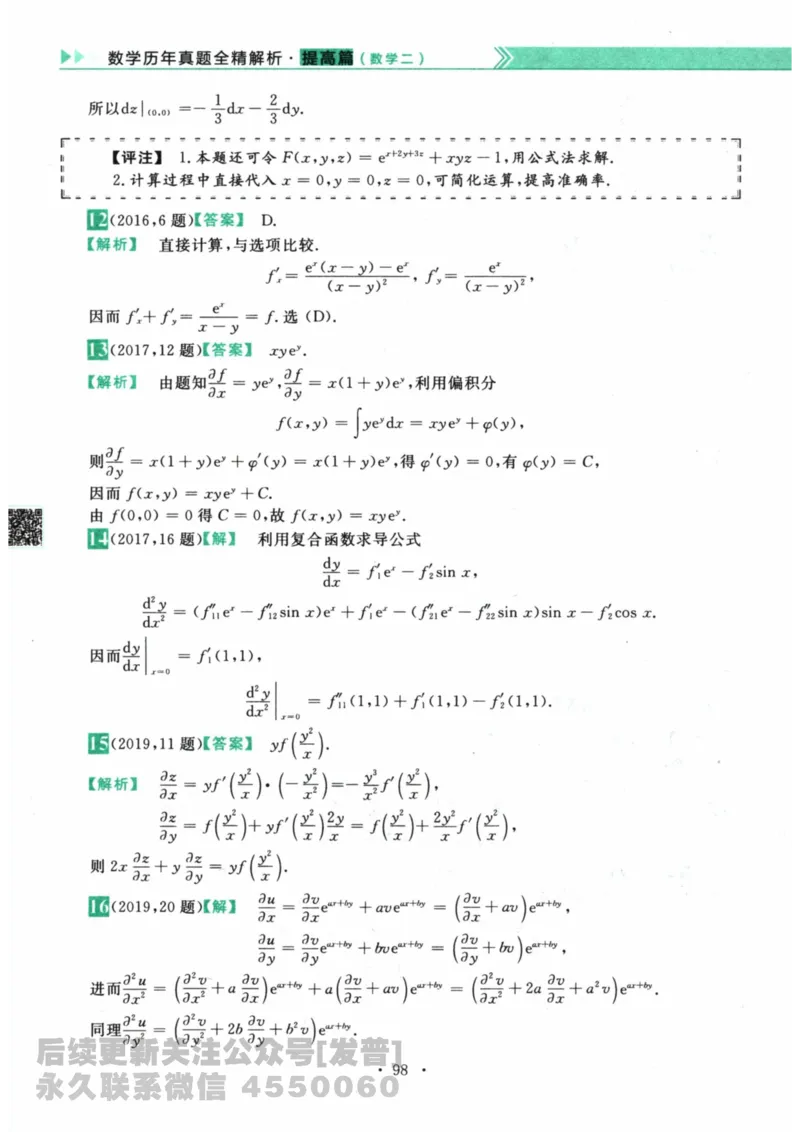 数学历年真题全精解析·提高篇(数学二)
所以dz|(0,0) = -1/3 dx - 2/3 dy.
【评注】 1.本题还可令 F(x,y,z) = e^{x+2y+3z} + xyz - 1,用公式法求解.
2.计算过程中直接代入 x = 0,y = 0,z = 0,可简化运算,提高准确率.
12(2016,6题)【答案】 D.
【解析】 直接计算,与选项比较.
f'_x = (e^x(x-y)-e^x)/(x-y)^2, f'_y = e^x/(x-y)^2,
因而 f'_x + f'_y = e^x/(x-y) = f.选(D).
13(2017,12题)【答案】 xye^y.
【解析】 由题知 ∂f/∂x = ye^y, ∂f/∂y = x(1+y)e^y,利用偏积分
f(x,y) = ∫ye^y dx = xye^y + φ(y),
则 ∂f/∂y = x(1+y)e^y + φ'(y) = x(1+y)e^y,得 φ'(y) = 0,有 φ(y) = C,
因而 f(x,y) = xye^y + C.
由 f(0,0) = 0 得 C = 0,故 f(x,y) = xye^y.
14(2017,16题)【解】 利用复合函数求导公式
dy/dx = f'_1 e^x - f'_2 sin x,
d²y/dx² = (f''_11 e^x - f''_12 sin x)e^x + f'_1 e^x - (f''_21 e^x - f''_22 sin x)sin x - f'_2 cos x.
因而 dy/dx|_{x=0} = f'_1(1,1),
d²y/dx²|_{x=0} = f''_11(1,1) + f'_1(1,1) - f'_2(1,1).
15(2019,11题)【答案】 yf(y²/x).
【解析】 ∂z/∂x = yf'(y²/x)·(-y²/x²) = -y³/x² f'(y²/x),
∂z/∂y = f(y²/x) + yf'(y²/x) 2y/x = f(y²/x) + 2y²/x f'(y²/x),
则 2x ∂z/∂x + y ∂z/∂y = yf(y²/x).
16(2019,20题)【解】 ∂u/∂x = ∂v/∂x e^{ax+by} + ave^{ax+by} = (∂v/∂x + av)e^{ax+by},
∂u/∂y = ∂v/∂y e^{ax+by} + bve^{ax+by} = (∂v/∂y + bv)e^{ax+by},
进而 ∂²u/∂x² = (∂²v/∂x² + a ∂v/∂x)e^{ax+by} + a(∂v/∂x + av)e^{ax+by} = (∂²v/∂x² + 2a ∂v/∂x + a²v)e^{ax+by}.
同理 ∂²u/∂y² = (∂²v/∂y² + 2b ∂v/∂y + b²v)e^{ax+by}.
后续更新关注公众号[发普]
· 98 ·
永久联系微信 4550060